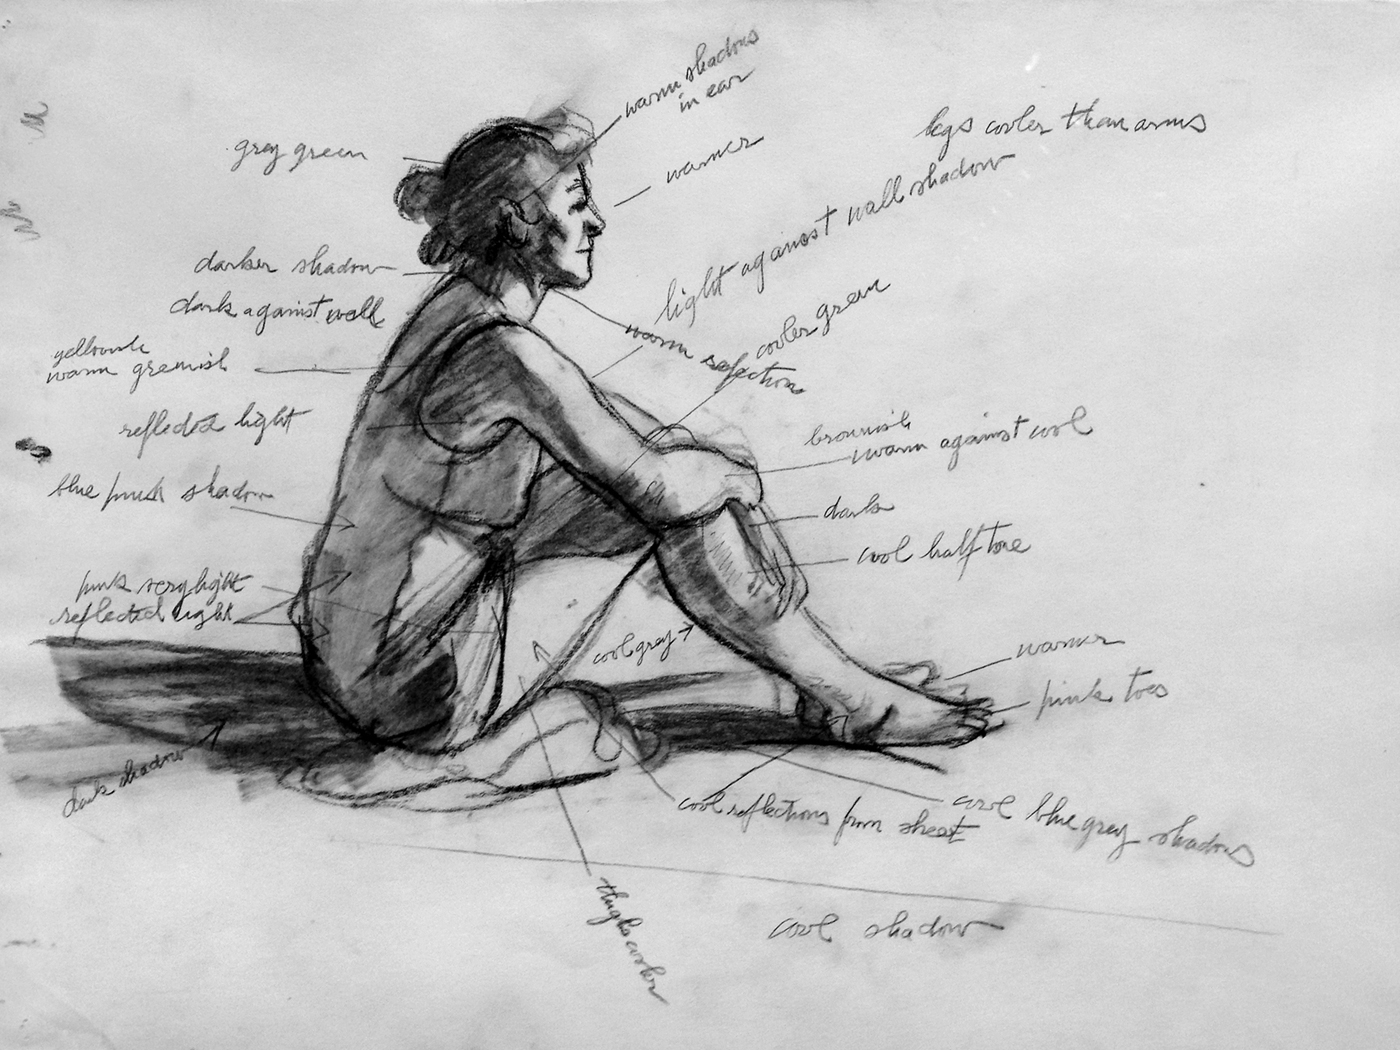 warm shadows
in ear
legs cooler than arms
grey green
warmer
light against wall shadow
darker shadow
dark against wall
cooler green
warm reflection
yellowish
warm greenish
reflected light
brownish
warm against cool
blue pink shadow
dark
cool half tone
pink very light
reflected light
cool grey
warmer
pink toes
dark shadow
cool reflections from sheet
cool blue grey shadows
thighs cooler
cool shadow